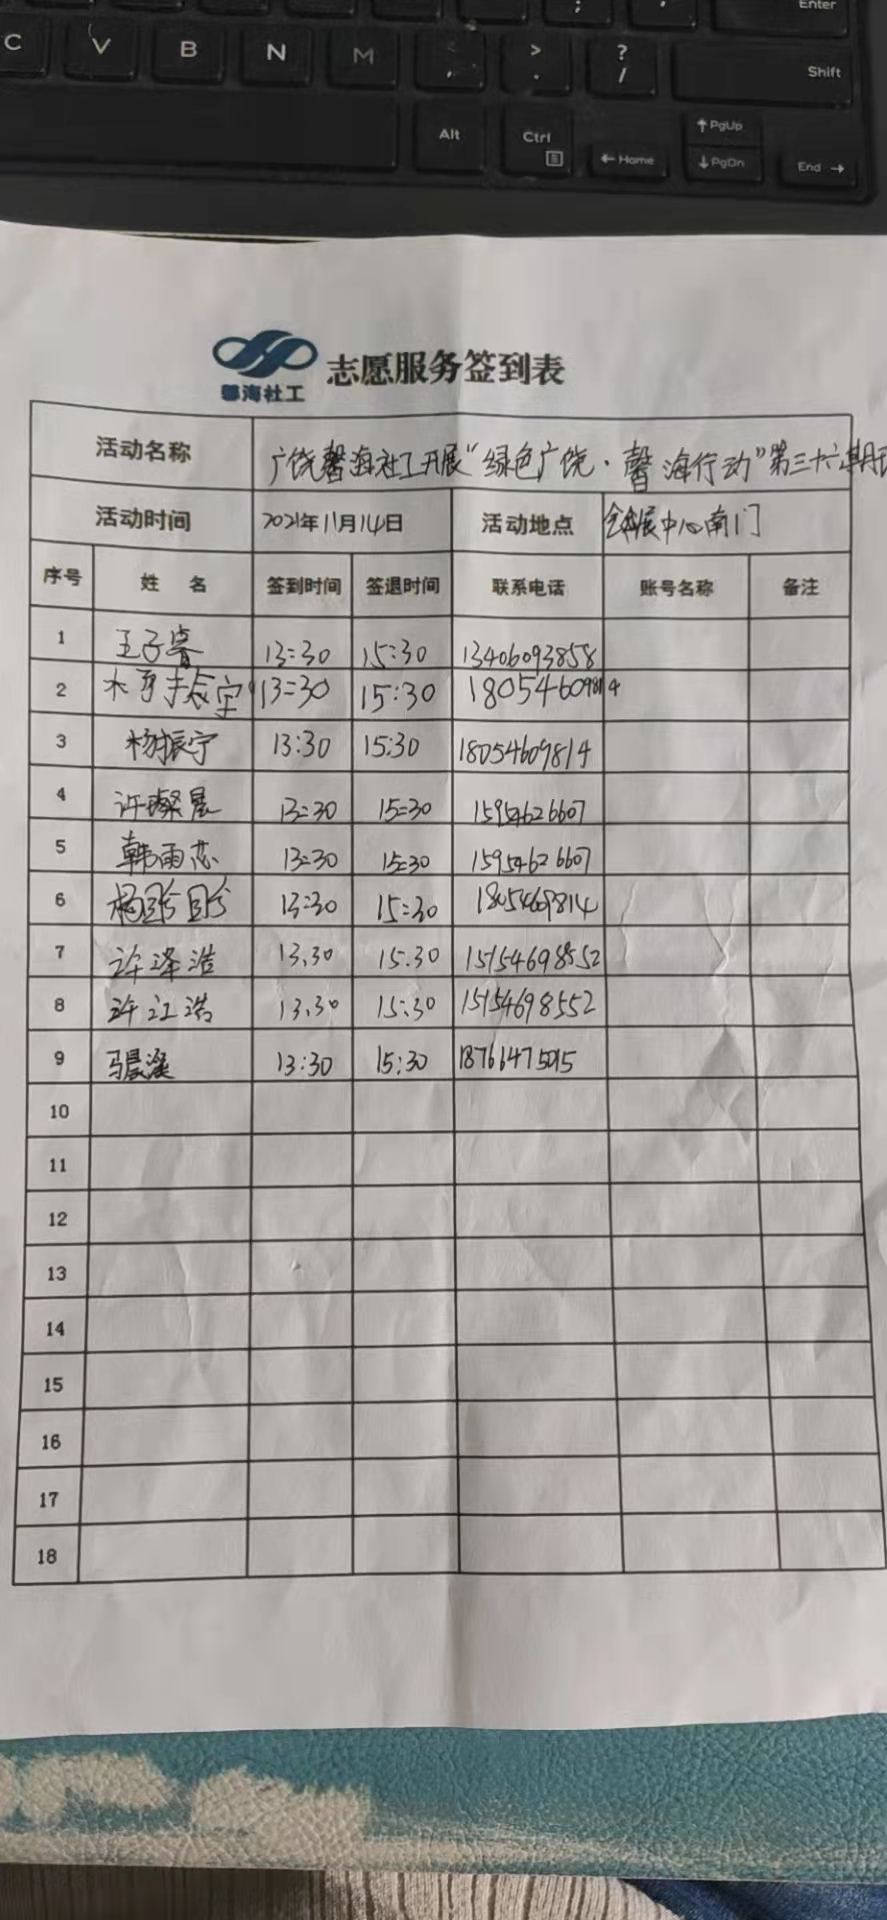 Enter
C V B N M < , > . ? /
Shift
Alt Ctrl PgUp
Home PgDn End
馨海社工 志愿服务签到表
活动名称 广饶馨海社工开展“绿色广饶·馨海行动”第三十六期
活动时间 2021年11月14日 活动地点 会展中心南门
序号 姓 名 签到时间 签退时间 联系电话 账号名称 备注
1 王子睿 13:30 15:30 13406093858
2 13:30 15:30 18054609814
3 杨振宁 13:30 15:30 18054609814
4 许璨晨 13:30 15:30 15954626607
5 韩雨芯 13:30 15:30 15954626607
6 13:30 15:30 18054609814
7 许泽浩 13.30 15.30 15154698552
8 许江浩 13.30 15:30 15154698552
9 13:30 15:30
10
11
12
13
14
15
16
17
18